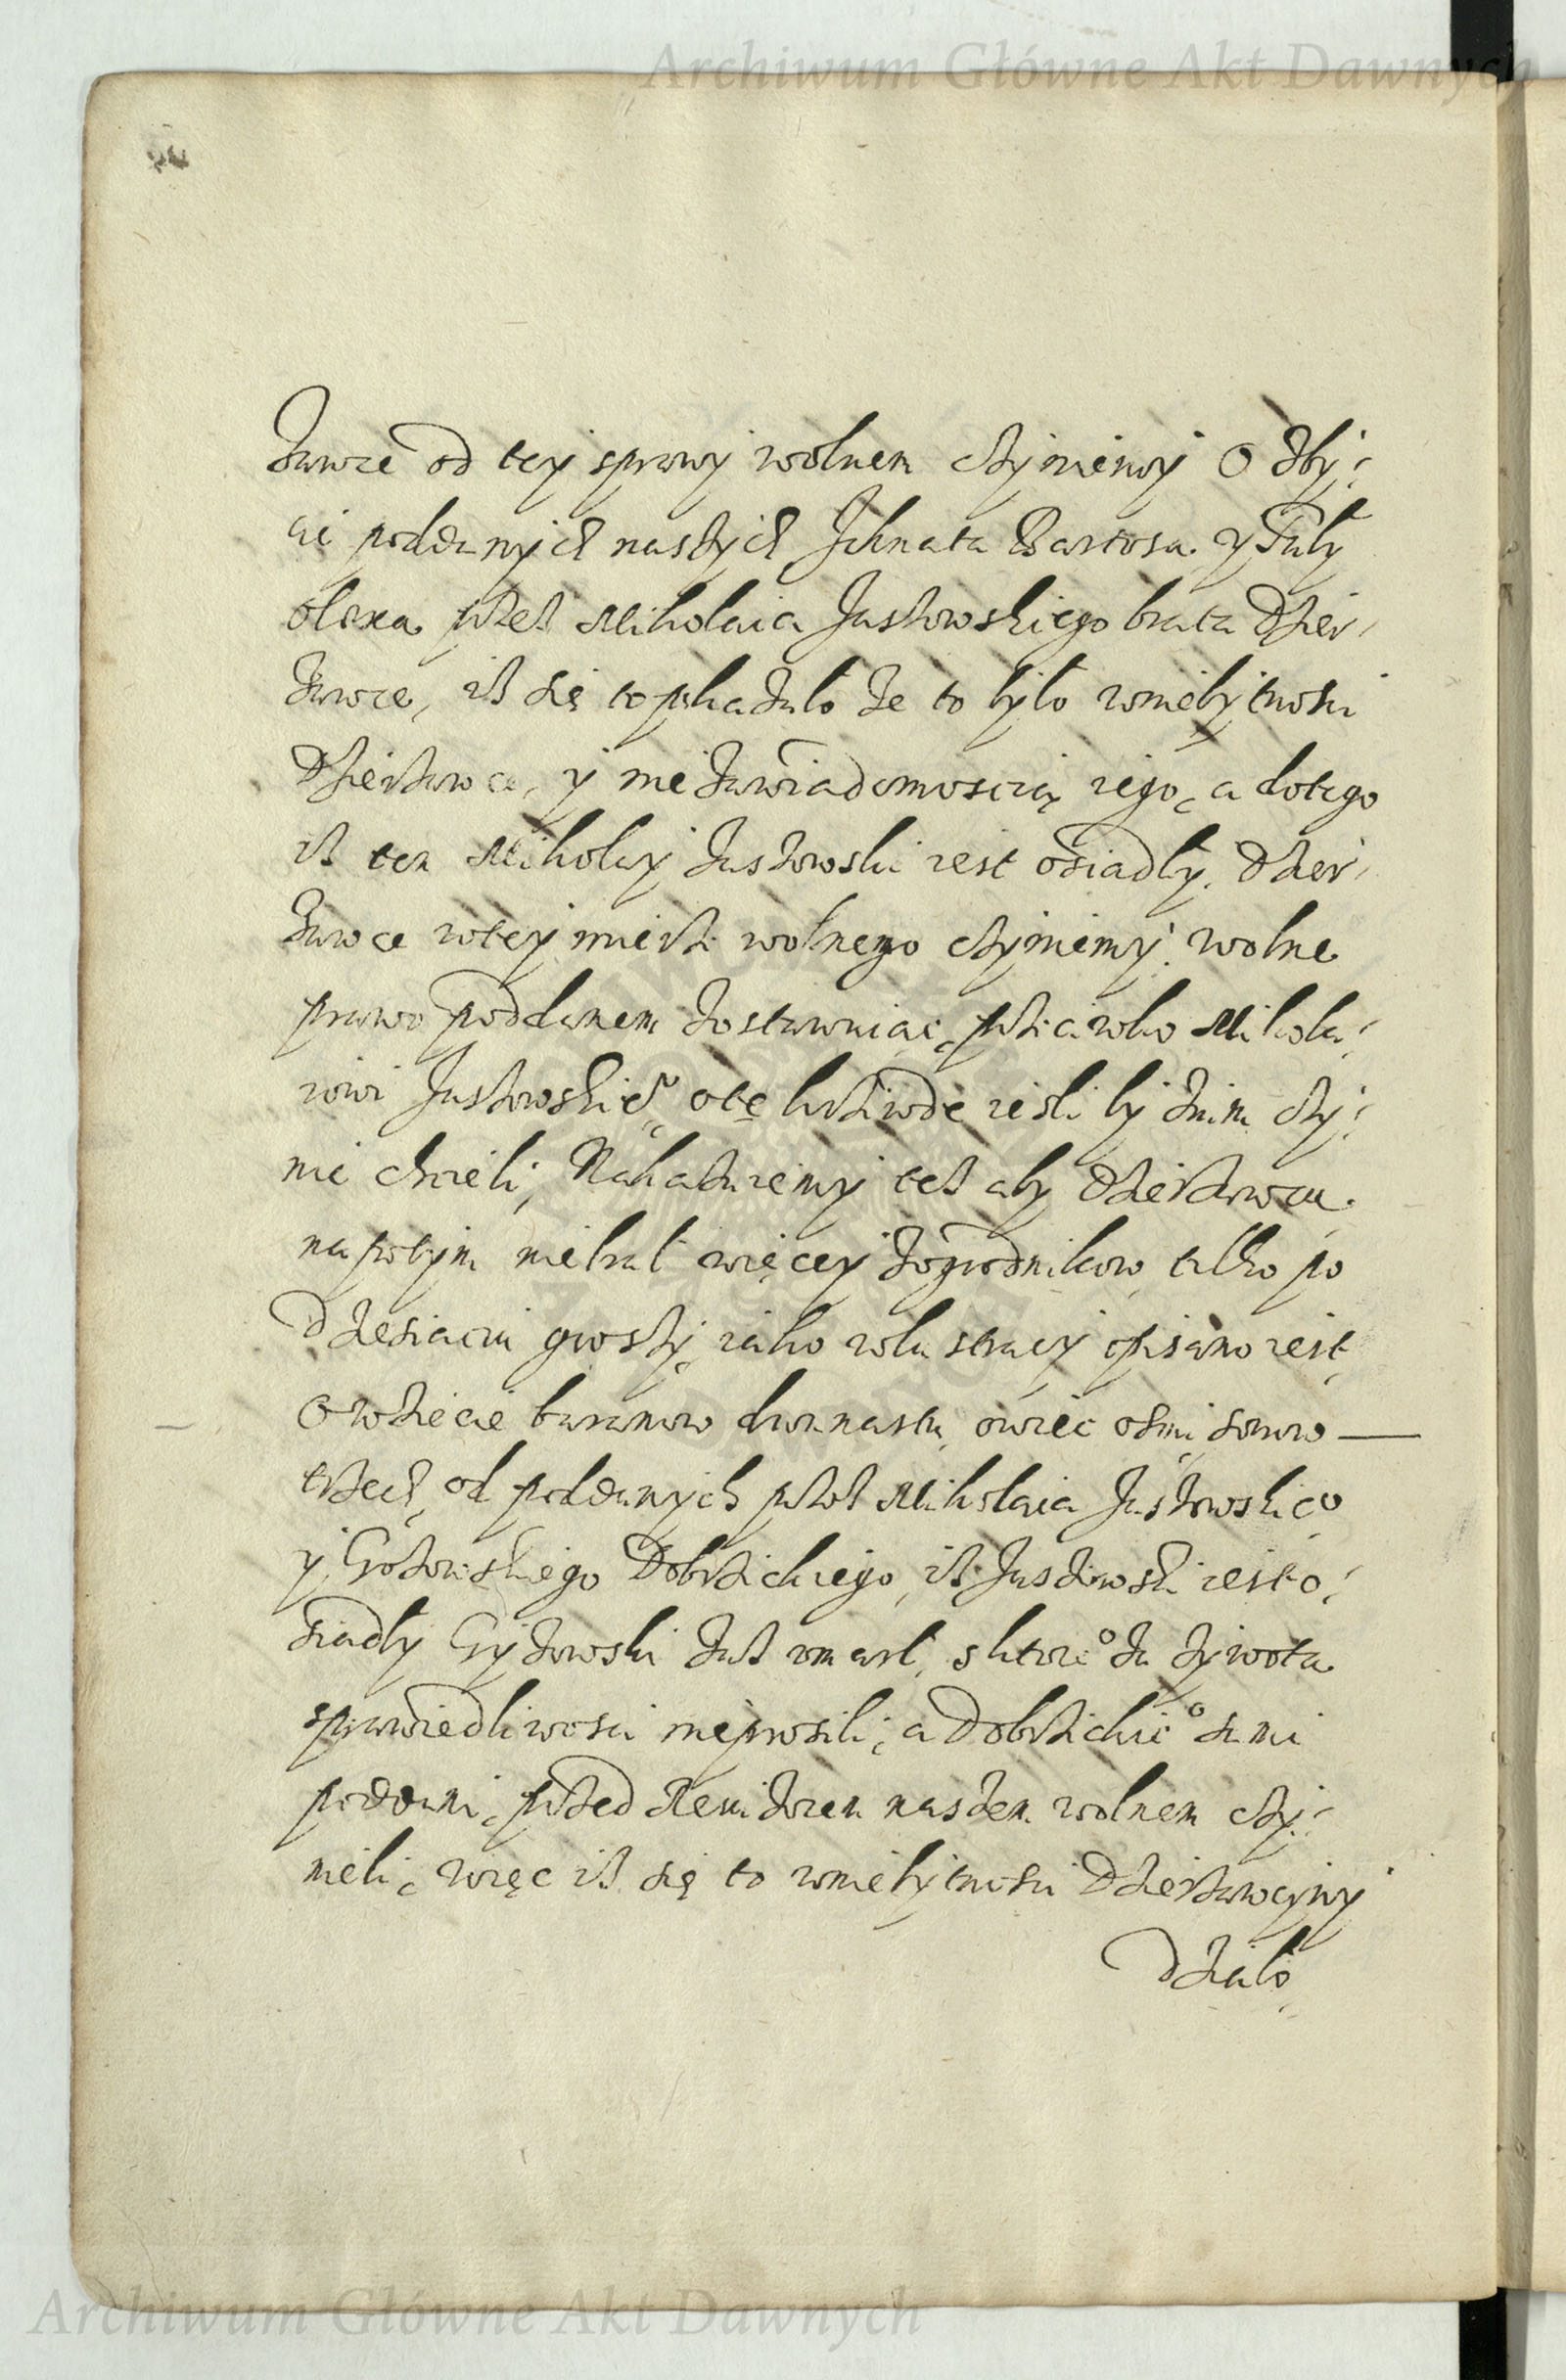 Archiwum Główne Akt Dawnych
żawcę od tey sprawy wolnem czyniemy O zby:
ci poddanych naszych Ichnata Bartosa y Fuły
olexa przez Mikołaia Jastowskiego brata Dzier/
żawce, iż się to pokazało że to było wniebytnosci
Dzierżawce, y nie zawiadomoscią iego, a do tego
iż ten Mikołay Jastowski iest osiadły, Dzier/
żawce wtey mierze wolnego czyniemy, wolne
prawo poddanem zostawuiąc, przeciwko Mikoła:
iowi Jastowskie° otę krziwdę iesli by znim czy:
nic chcieli, Nakazuiemy też aby Dzierżawca
napotym niebrał więcey zogrodnikow tilko po
dziesiąci groszy, iako wlustracy opisano iest
O wzięcie baranow dwunastu, owiec osmi, sorow
trzech, od poddanych przez Mikołaia Jastowskie°
y Grożowskiego Dobrzickiego, iż Jastowski iest o:
siadły Gryżowski zaś vmarł, sktore° za żywota
sprawiedliwosci nieprosili, a Dobrzickie° sami
poddani, przed Rewizorem naszem wolnem czy:
nieli, więc iż się to wniebytnosci Dzierżawcyny
działo
Archiwum Główne Akt Dawnych